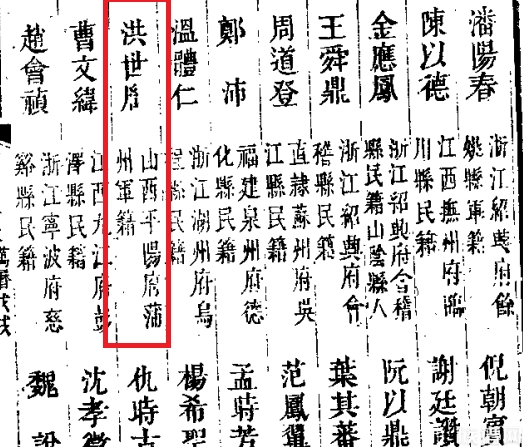 潘陽春
浙江紹興府餘
姚縣軍籍
倪朝
陳以德
江西撫州府臨
川縣民籍
謝廷讚
金應鳳
浙江紹興府會稽
縣民籍山陰縣人
阮以鼎
王舜鼎
浙江紹興府會
稽縣民籍
葉其蕃
周道登
直隸蘇州府吳
江縣民籍
范鳳翼
鄭沛
福建泉州府德
化縣民籍
孟時芳
溫體仁
浙江湖州府烏
程縣民籍
楊希聖
洪世
山西平陽府蒲
州軍籍
仇時古
曹文緯
江西九江府彭
澤縣民籍
沈孝
趙會禎
浙江寧波府慈
谿縣民籍
魏說